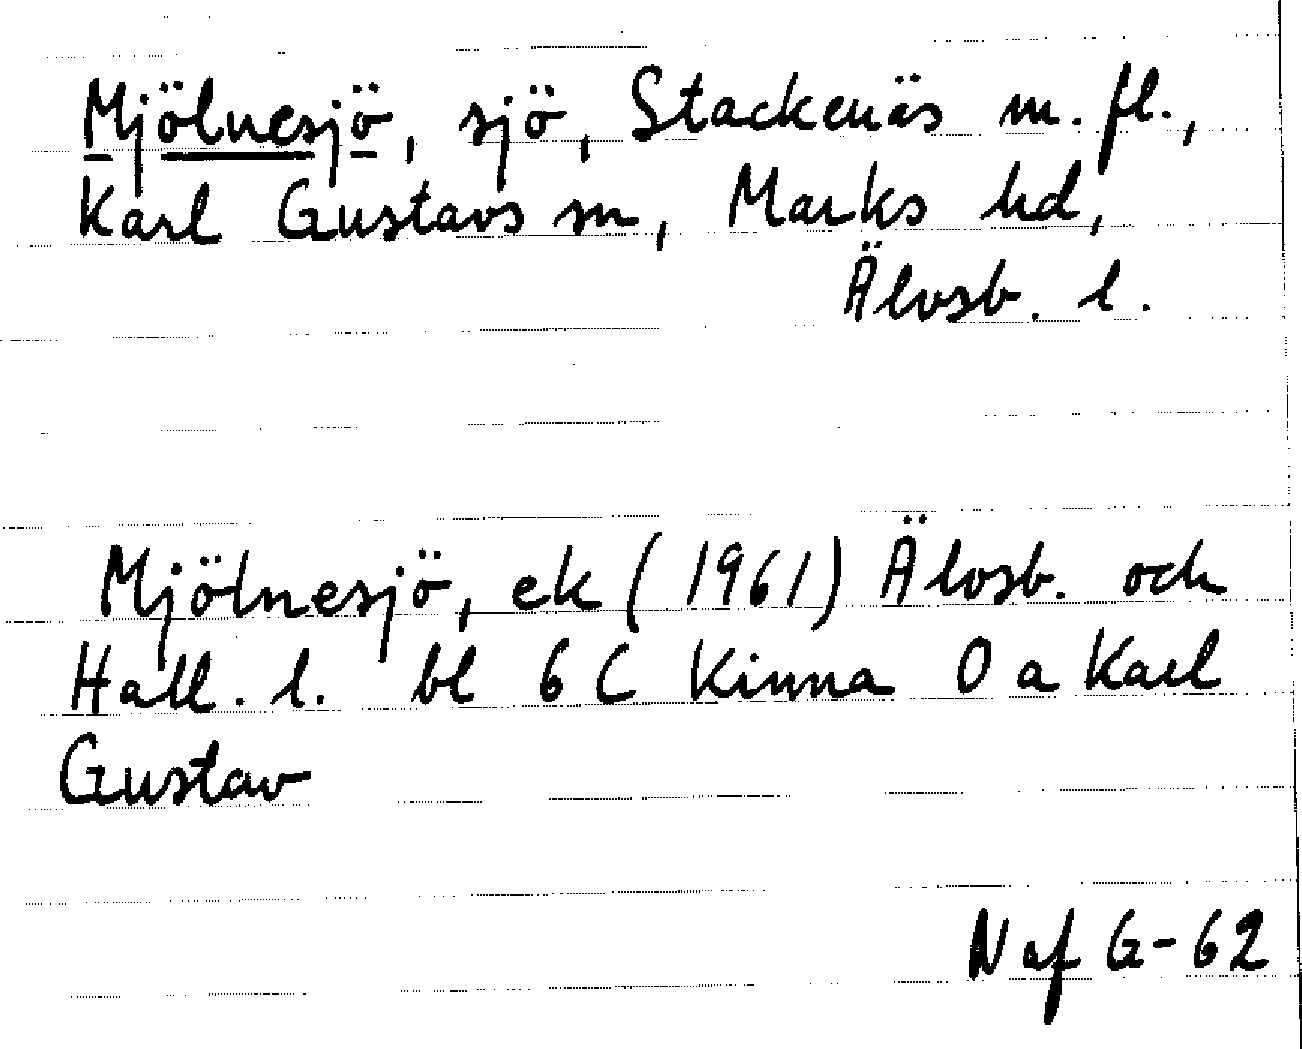 Mjölnesjö, sjö, Stackenäs m. fl.,
Karl Gustavs sn, Marks hd,
Älvsb. l.
Mjölnesjö, ek (1961) Älvsb. och
Hall. l. bl 6 C Kinna 0 a Karl
Gustav
N af G-62